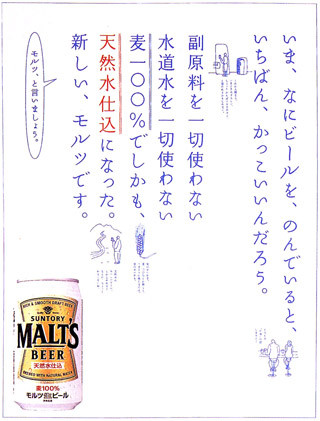 いま、なにビールを、のんでいると、
いちばん、かっこいいんだろう。
副原料を一切使わない
水道水を一切使わない
麦一〇〇%でしかも、
天然水仕込になった。
新しい、モルツです。
モルツ、と言いましょう。
BEER & SMOOTH DRAFT BEER
SUNTORY
MALT'S
BEER
天然水仕込
BREWED WITH NATURAL WATER
麦100%
モルツ生ビール